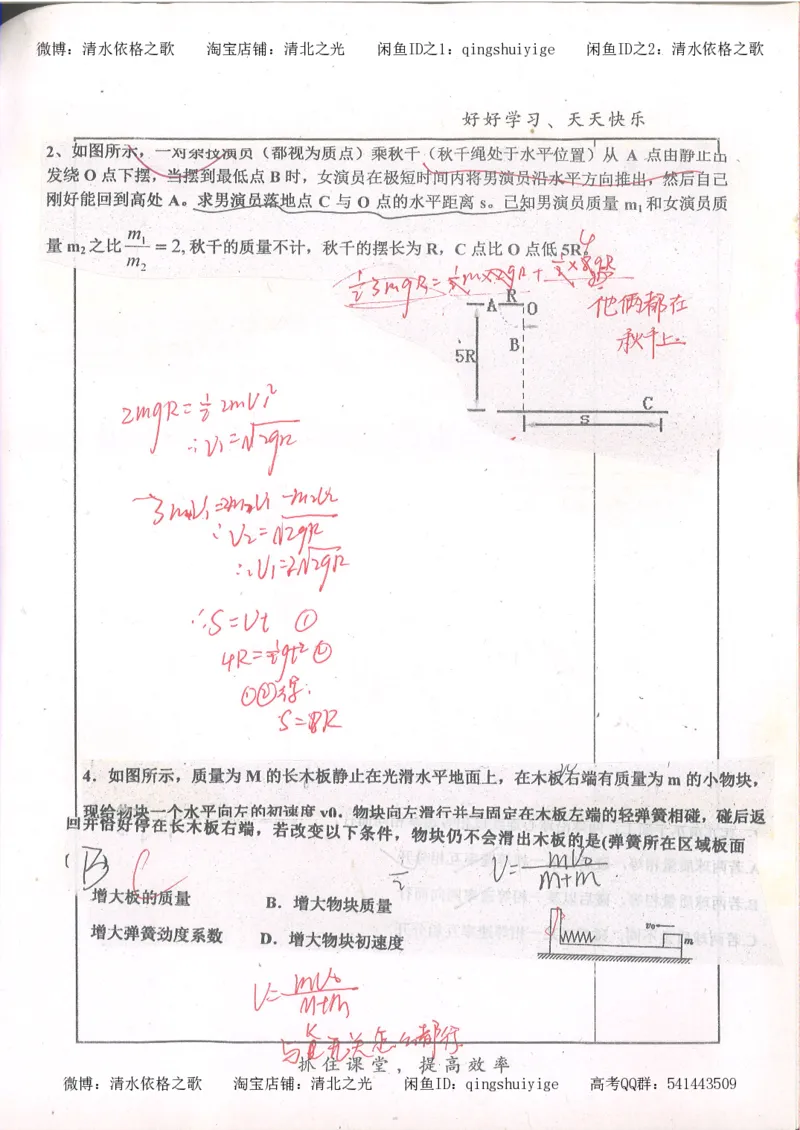 微博：清水依格之歌 淘宝店铺：清北之光 闲鱼ID之1：qingshuiyige 闲鱼ID之2：清水依格之歌
好好学习、天天快乐
2、如图所示，一对杂技演员（都视为质点）乘秋千（秋千绳处于水平位置）从 A 点由静止出
发绕 O 点下摆，当摆到最低点 B 时，女演员在极短时间内将男演员沿水平方向推出，然后自己
刚好能回到高处 A。求男演员落地点 C 与 O 点的水平距离 s。已知男演员质量 m₁ 和女演员质
量 m₂ 之比 m₁/m₂ = 2, 秋千的质量不计，秋千的摆长为 R，C 点比 O 点低 5R。
4
他俩都在
秋千上。
R
A O
B
5R
C
S
2mgR=½2mV₁²
∴V₁=√2gR
∴V₂=√2gR
∴V₁=2√2gR
∴S=Vt ①
4R=½gt² ②
①②得.
S=8R
4．如图所示，质量为 M 的长木板静止在光滑水平地面上，在木板右端有质量为 m 的小物块，
现给物块一个水平向左的初速度 v0。物块向左滑行并与固定在木板左端的轻弹簧相碰，碰后返
回并恰好停在长木板右端，若改变以下条件，物块仍不会滑出木板的是(弹簧所在区域板面
( B) C
V=mV₀/m+m
增大板的质量 B．增大物块质量
增大弹簧劲度系数 D．增大物块初速度
v₀ m
V=mV₀/M+m
与K无关怎么都行
抓住课堂，提高效率
微博：清水依格之歌 淘宝店铺：清北之光 闲鱼ID：qingshuiyige 高考QQ群：541443509